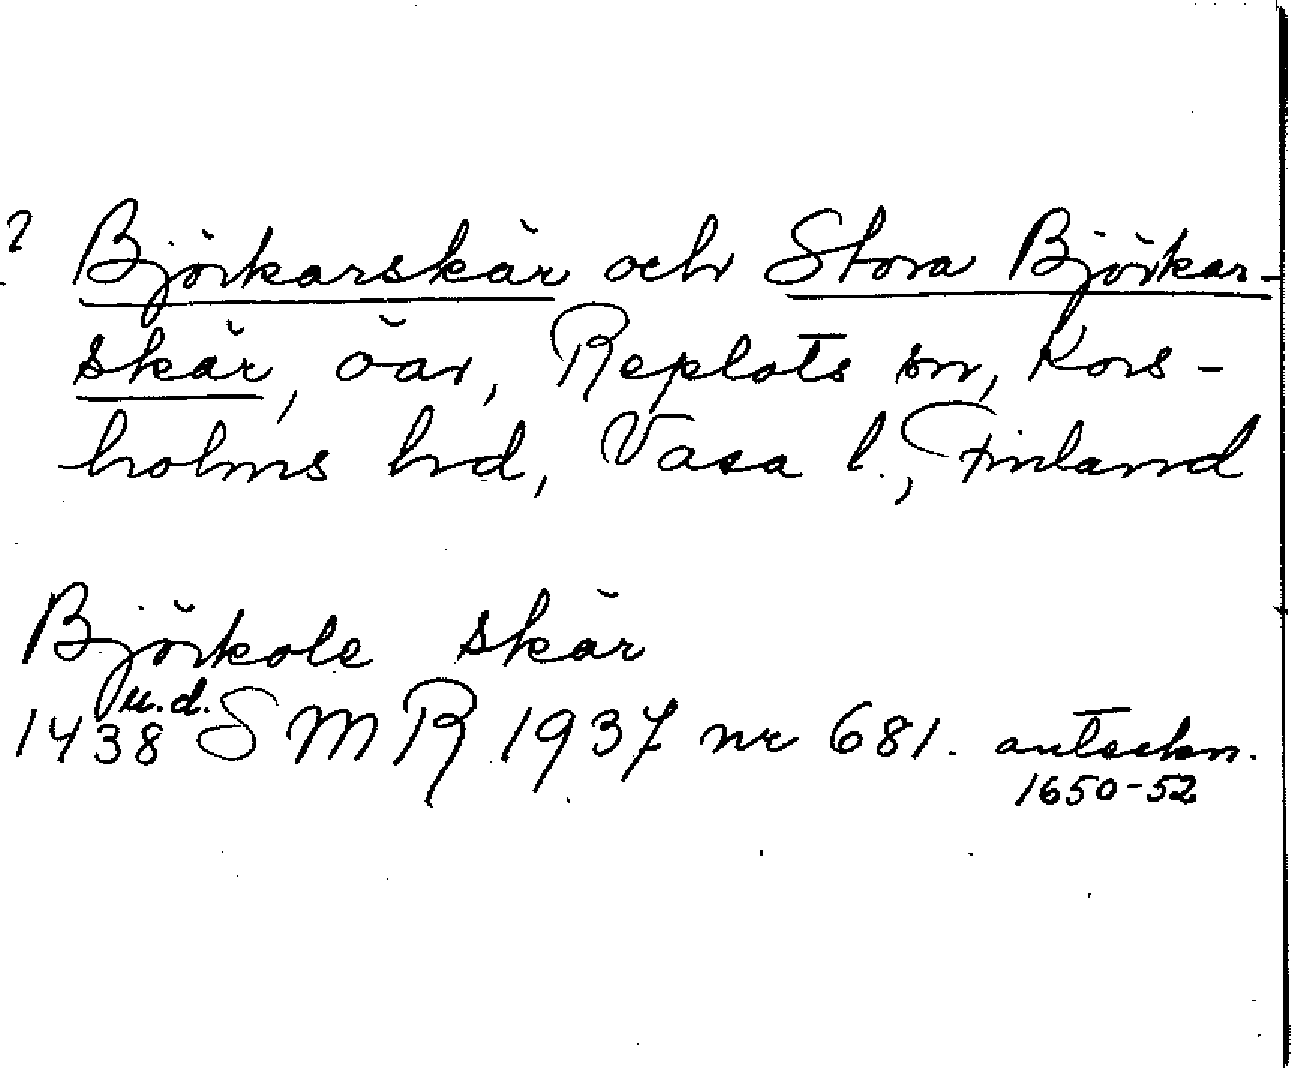 ? Björkarskär och Stora Björkar-
skär, öar, Replots sn, Kors-
holms hd, Vasa l., Finland
Björkole skär
1438 u.d. SMR 1937 nr 681. anteckn.
1650-52